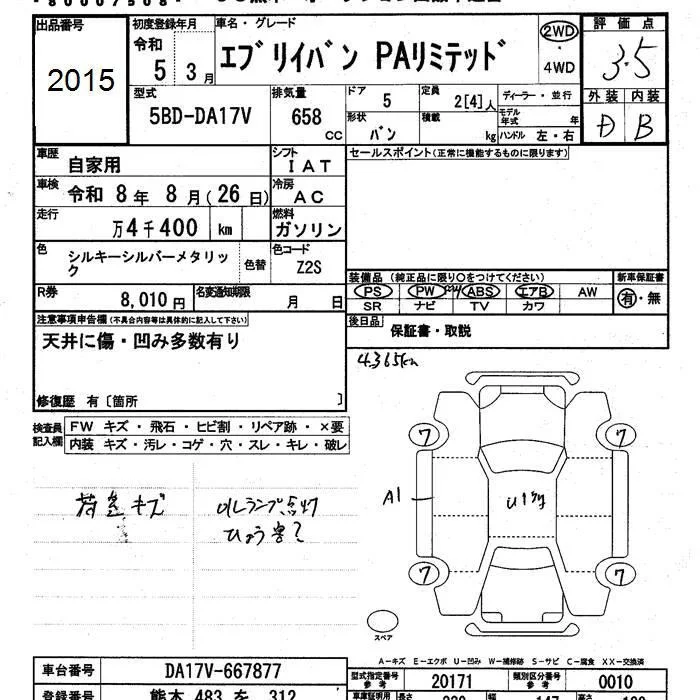 出品番号
2015
初度登録年月
令和
5 3月
車名・グレード
エブリイバン PAリミテッド
2WD
・
4WD
評価点
3.5
外装 内装
D B
型式
5BD-DA17V
排気量
658
cc
ドア
5
定員
2[4]人
ディーラー・並行
形状
バン
積載
kg
モデル年式
年
ハンドル 左・右
車歴
自家用
シフト
IAT
セールスポイント(正常に機能するものに限ります)
車検
令和 8年 8月(26日)
冷房
AC
走行
万4千400 km
燃料
ガソリン
色
シルキーシルバーメタリック
色替
色コード
Z2S
装備品(純正品に限り〇をつけてください)
新車保証書
PS PW ABS エアB AW
SR ナビ TV カワ
有・無
R券
8,010円
名変通知期限
月 日
後日品
保証書・取説
注意事項申告欄(不具合内容等は具体的に記入して下さい)
天井に傷・凹み多数有り
4365km
修復歴 有〔箇所 〕
検査員記入欄
FW キズ・飛石・ヒビ割・リペア跡・×要
内装 キズ・汚レ・コゲ・穴・スレ・キレ・破レ
荷室キズ
OILランプ点灯
ひょう害?
7
7
A1
7
7
スペア
A-キズ E-エクボ U-凹み W-補修跡 S-サビ C-腐食 XX-交換済
車台番号
DA17V-667877
型式指定番号
参考
20171
類別区分番号
参考
0010
登録番号
熊本 483 を 312
車庫証明用
長さ
幅
147
高さ